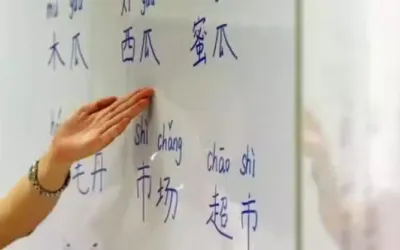 mù guā xī guā
木瓜 西瓜 蜜瓜
shì chǎng
chāo shì
毛丹 市场 超市